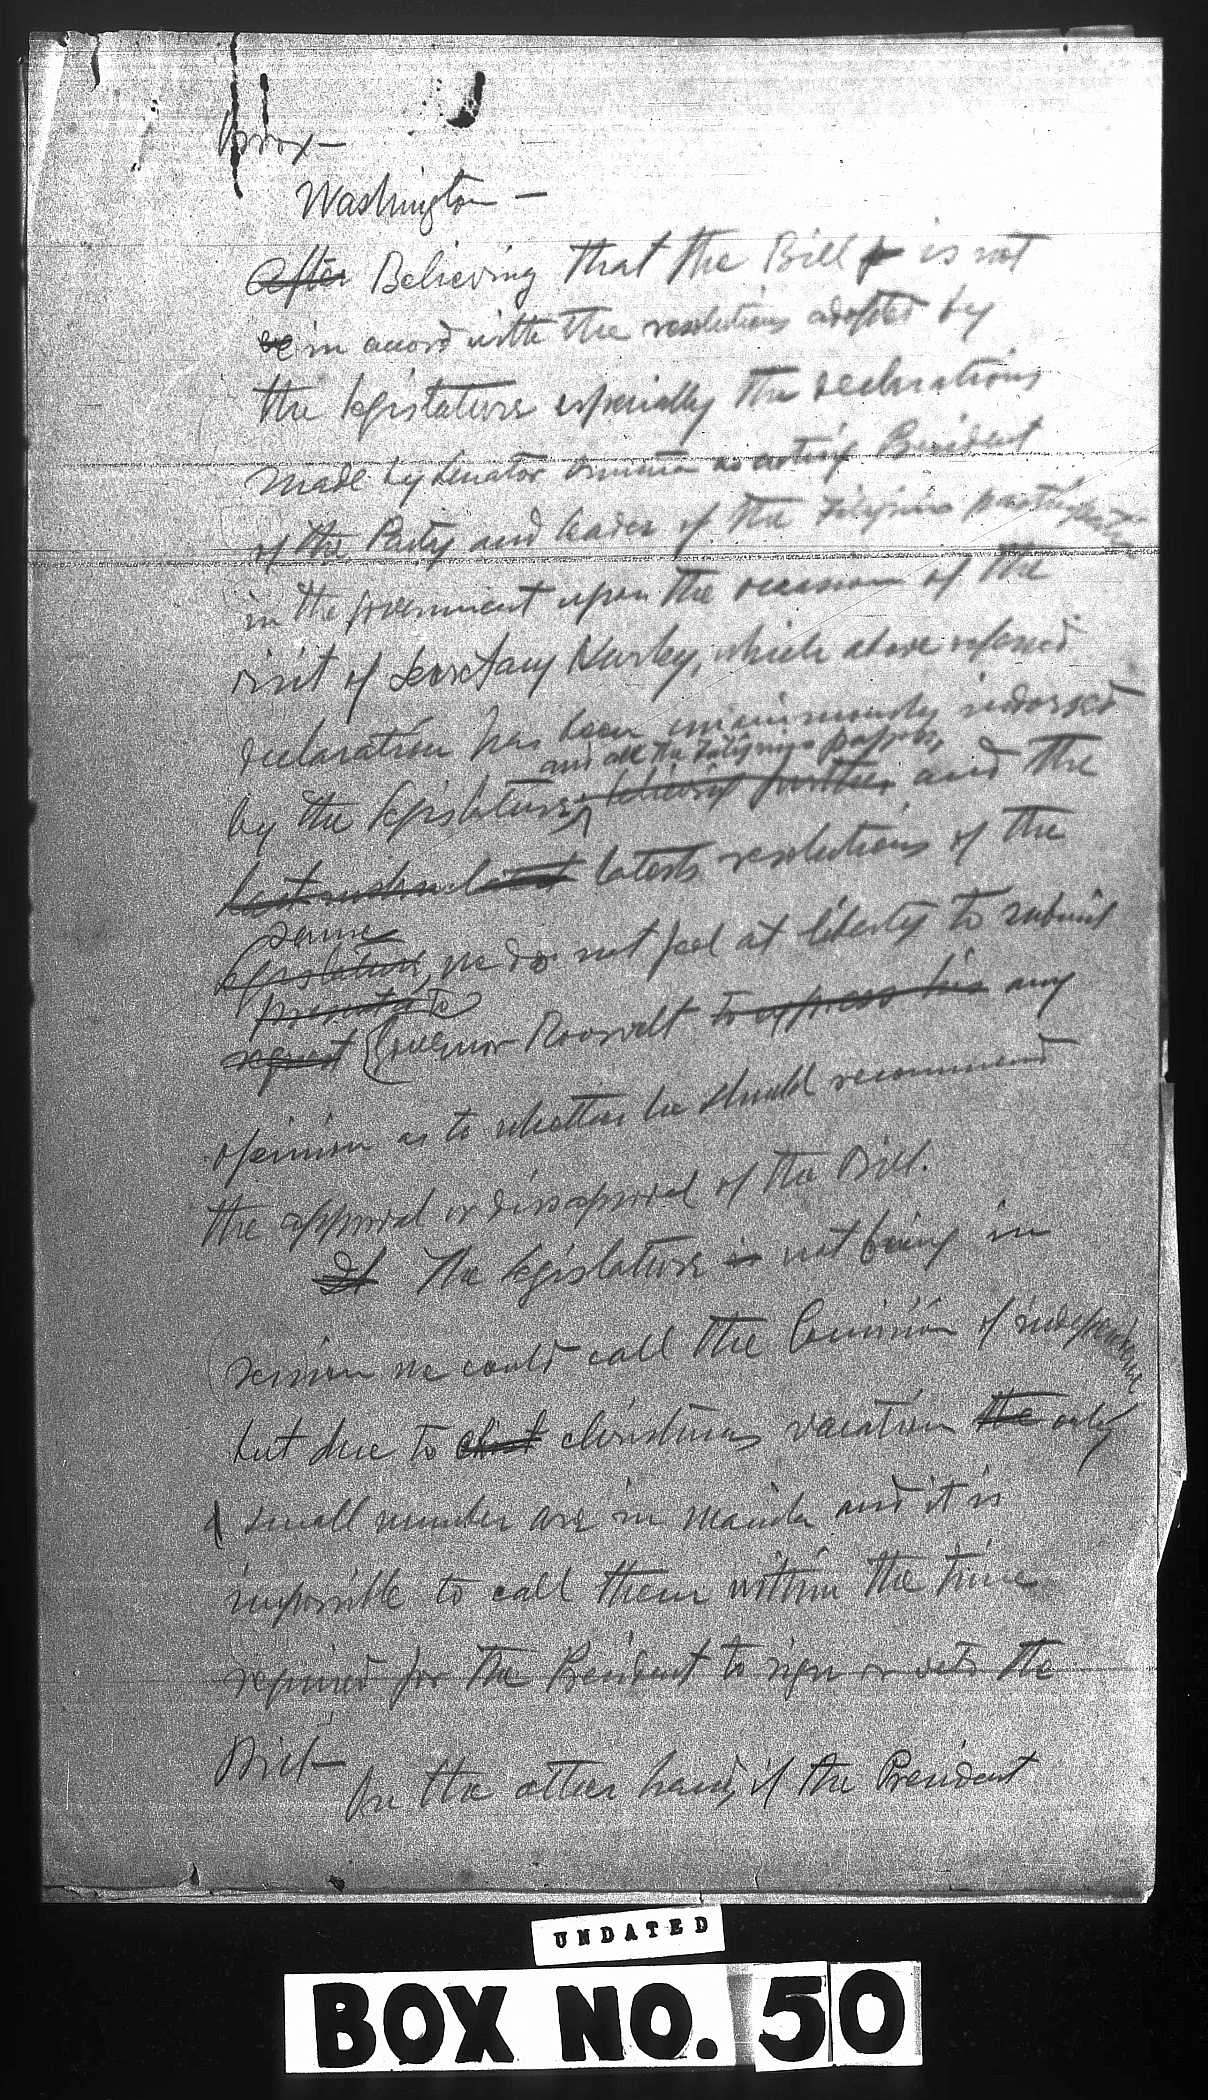 Osrox—
Washington —
After Believing that the Bill is not
be in accord with the resolutions adopted by
the legislature especially the declarations
made by Senator Osmeña as acting President
of the Party and leader of the Filipino participation
in the government upon the occasion of the
visit of Secretary Hurley, which above refered
declaration has been unanimously indorsed
and all the Filipino papers,
by the legislature, believing further and the
latests resolutions of the
same
legislature, we do not feel at liberty to submit
to
request Governor Roosevelt to express his any
opinion as to whether he should recommend
the approval or dissaproval of the Bill.
If The legislature is not being in
session we could call the Comisión of independence
but due to christmas vacation the only
a small number are in Manila and it is
impossible to call them within the time
required for the President to sign or veto the
Bill—
On the other hand, if the President
UNDATED
BOX NO. 50